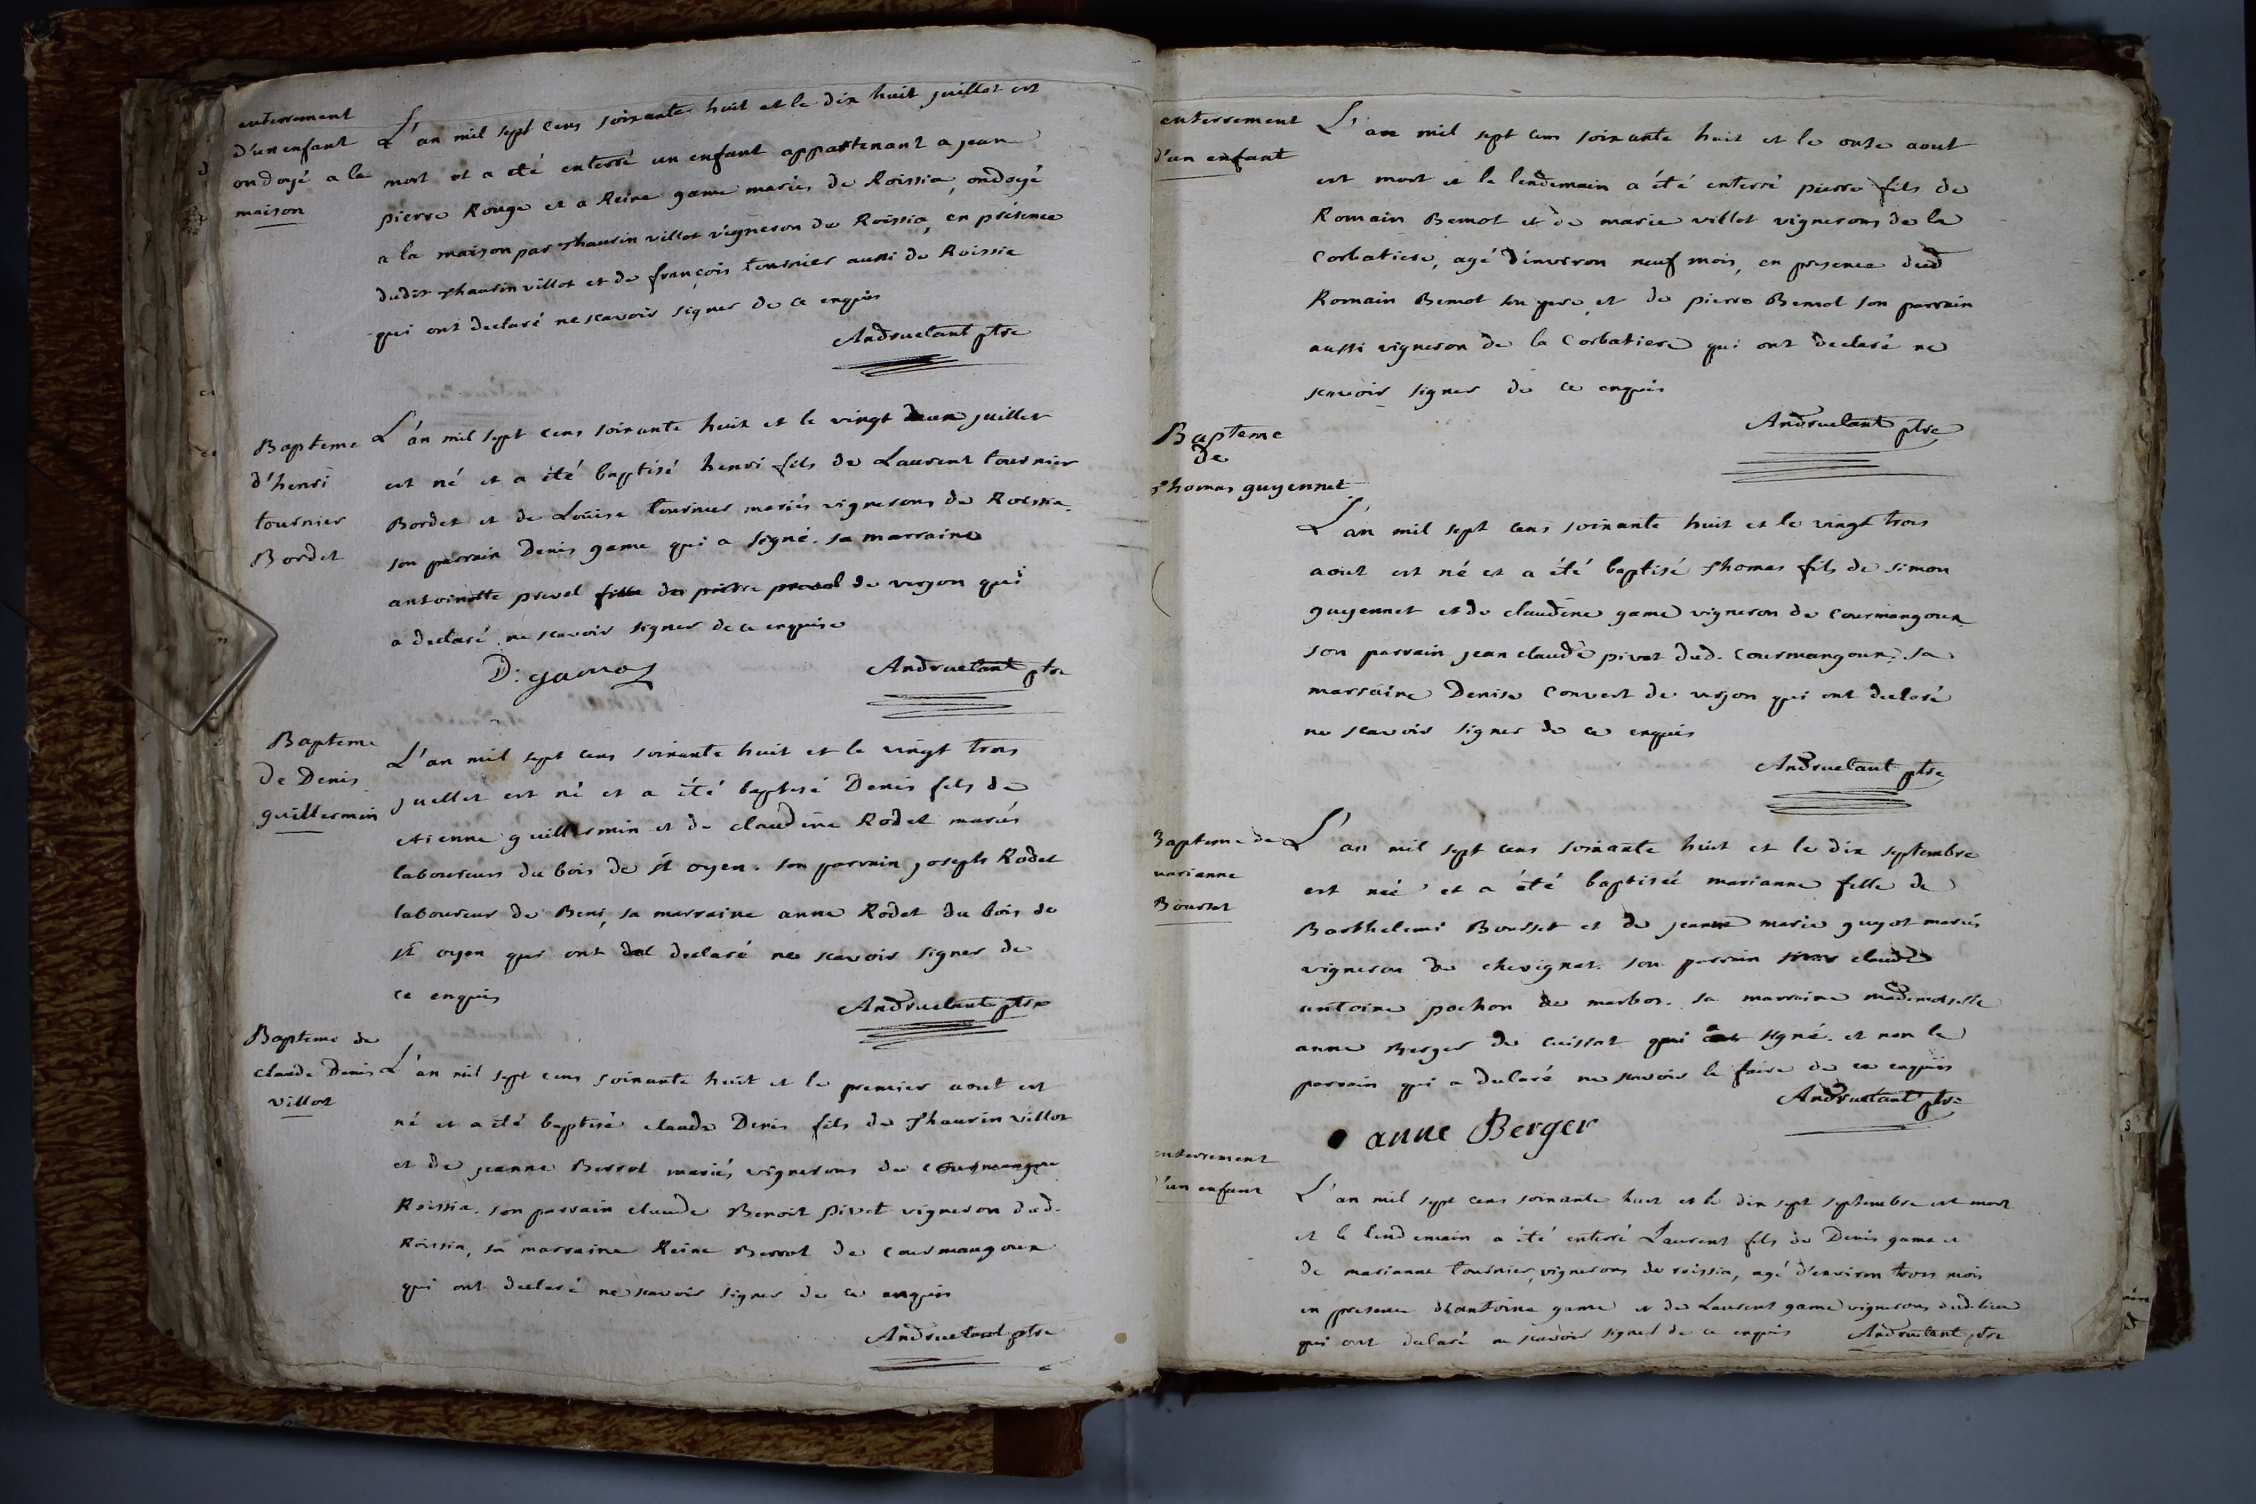 enterrement
d'un enfant
ondoyé a la
maison
L'an mil sept cens soixante huit et le dix huit juillet est
mort et a été enterré un enfant appartenant a jean
pierre Rouge et a Reine game mariés de Roissia, ondoyé
a la maison par thaurin villot vigneron de Roissia, en présence
dudit thaurin villot et de françois tournier aussi de Roissia
qui ont declaré ne scavoir signer de ce enquis
Andruetant ptre
Bapteme
d'henri
tournier
Bordet
L'an mil sept cens soixante huit et le vingt deux juillet
est né et a été baptisé henri fils de Laurent tournier
Bordet et de Loüise tournier mariés vignerons de Roissia.
son parrain Denis game qui a signé. sa marraine
antoinette prevel de verjon qui
a declaré ne scavoir signer de ce enquise
D. game
Andruetant ptre
Bapteme
de Denis
guillermin
L'an mil sept cens soixante huit et le vingt trois
juillet est né et a été baptisé Denis fils de
etienne guillermin et de claudine Rodet mariés
laboureurs du bois de st oyen. son parrain joseph Rodet
laboureur de Beni, sa marraine anne Rodet du bois de
st oyen qui ont declaré ne scavoir signer de
ce enquis
Andruetant ptre
Bapteme de
claude Denis
villot
L'an mil sept cens soixante huit et le premier aout est
né et a été baptisé claude Denis fils de thaurin villot
et de jeanne Berrot mariés vignerons de
Roissia. son parrain claude Benoit pivet vigneron dud.
Roissia, sa marraine Reine Berrot de courmangoux
qui ont declaré ne scavoir signer de ce enquis
Andruetant ptre
enterrement
d'un enfant
L'an mil sept cens soixante huit et le onze aout
est mort et le lendemain a été enterré pierre fils de
Romain Bemot et de marie villot vignerons de la
Corbatiere, agé d'environ neuf mois, en presence dud
Romain Bemot son pere, et de pierre Bemot son parrain
aussi vigneron de la Corbatiere qui ont declaré ne
scavoir signer de ce enquis
Andruetant ptre
Bapteme
de
thomas guyennet
L'an mil sept cens soixante huit et le vingt trois
aout est né et a été baptisé thomas fils de simon
guyennet et de claudine game vigneron de courmangoux
son parrain jean claude pivet dud. courmangoux, sa
marraine Denise Convert de verjon qui ont declaré
ne scavoir signer de ce enquis
Andruetant ptre
Bapteme de
marianne
Bousset
L'an mil sept cens soixante huit et le dix septembre
est née et a été baptisée marianne fille de
Barthelemi Bousset et de jeanne marie guyot mariés
vigneron de chevignat. son parrain claude
antoine pochon de marboz. sa marraine mademoiselle
anne Berger de cuissat qui a signé. et non le
parrain qui a declaré ne scavoir le faire de ce enquis
Andruetant ptre
anne Berger
enterrement
d'un enfant
L'an mil sept cens soixante huit et le dix sept septembre est mort
et le lendemain a été enterré Laurent fils de Denis game et
de marianne tournier, vignerons de roissia, agé d'environ trois mois
en presence d'antoine game et de Laurent game vignerons dud. lieu
qui ont declaré ne scavoir signer de ce enquis
Andruetant ptre